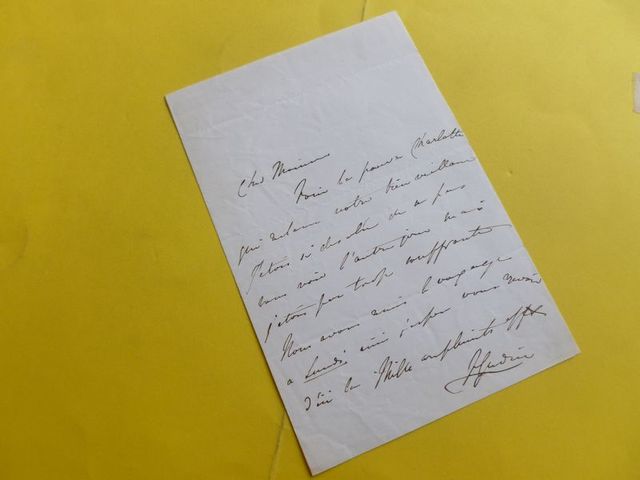 Cher Monsieur
Voici la pauvre Charlotte
qui réclame votre bienveillance
J'étais si désolée de ne pas
vous voir l'autre jour mais
j'étais par trop souffrante
Nous avons remis le voyage
a Lundi ainsi j'espère vous revoir
d'ici la Mille compliments aff
Gudin